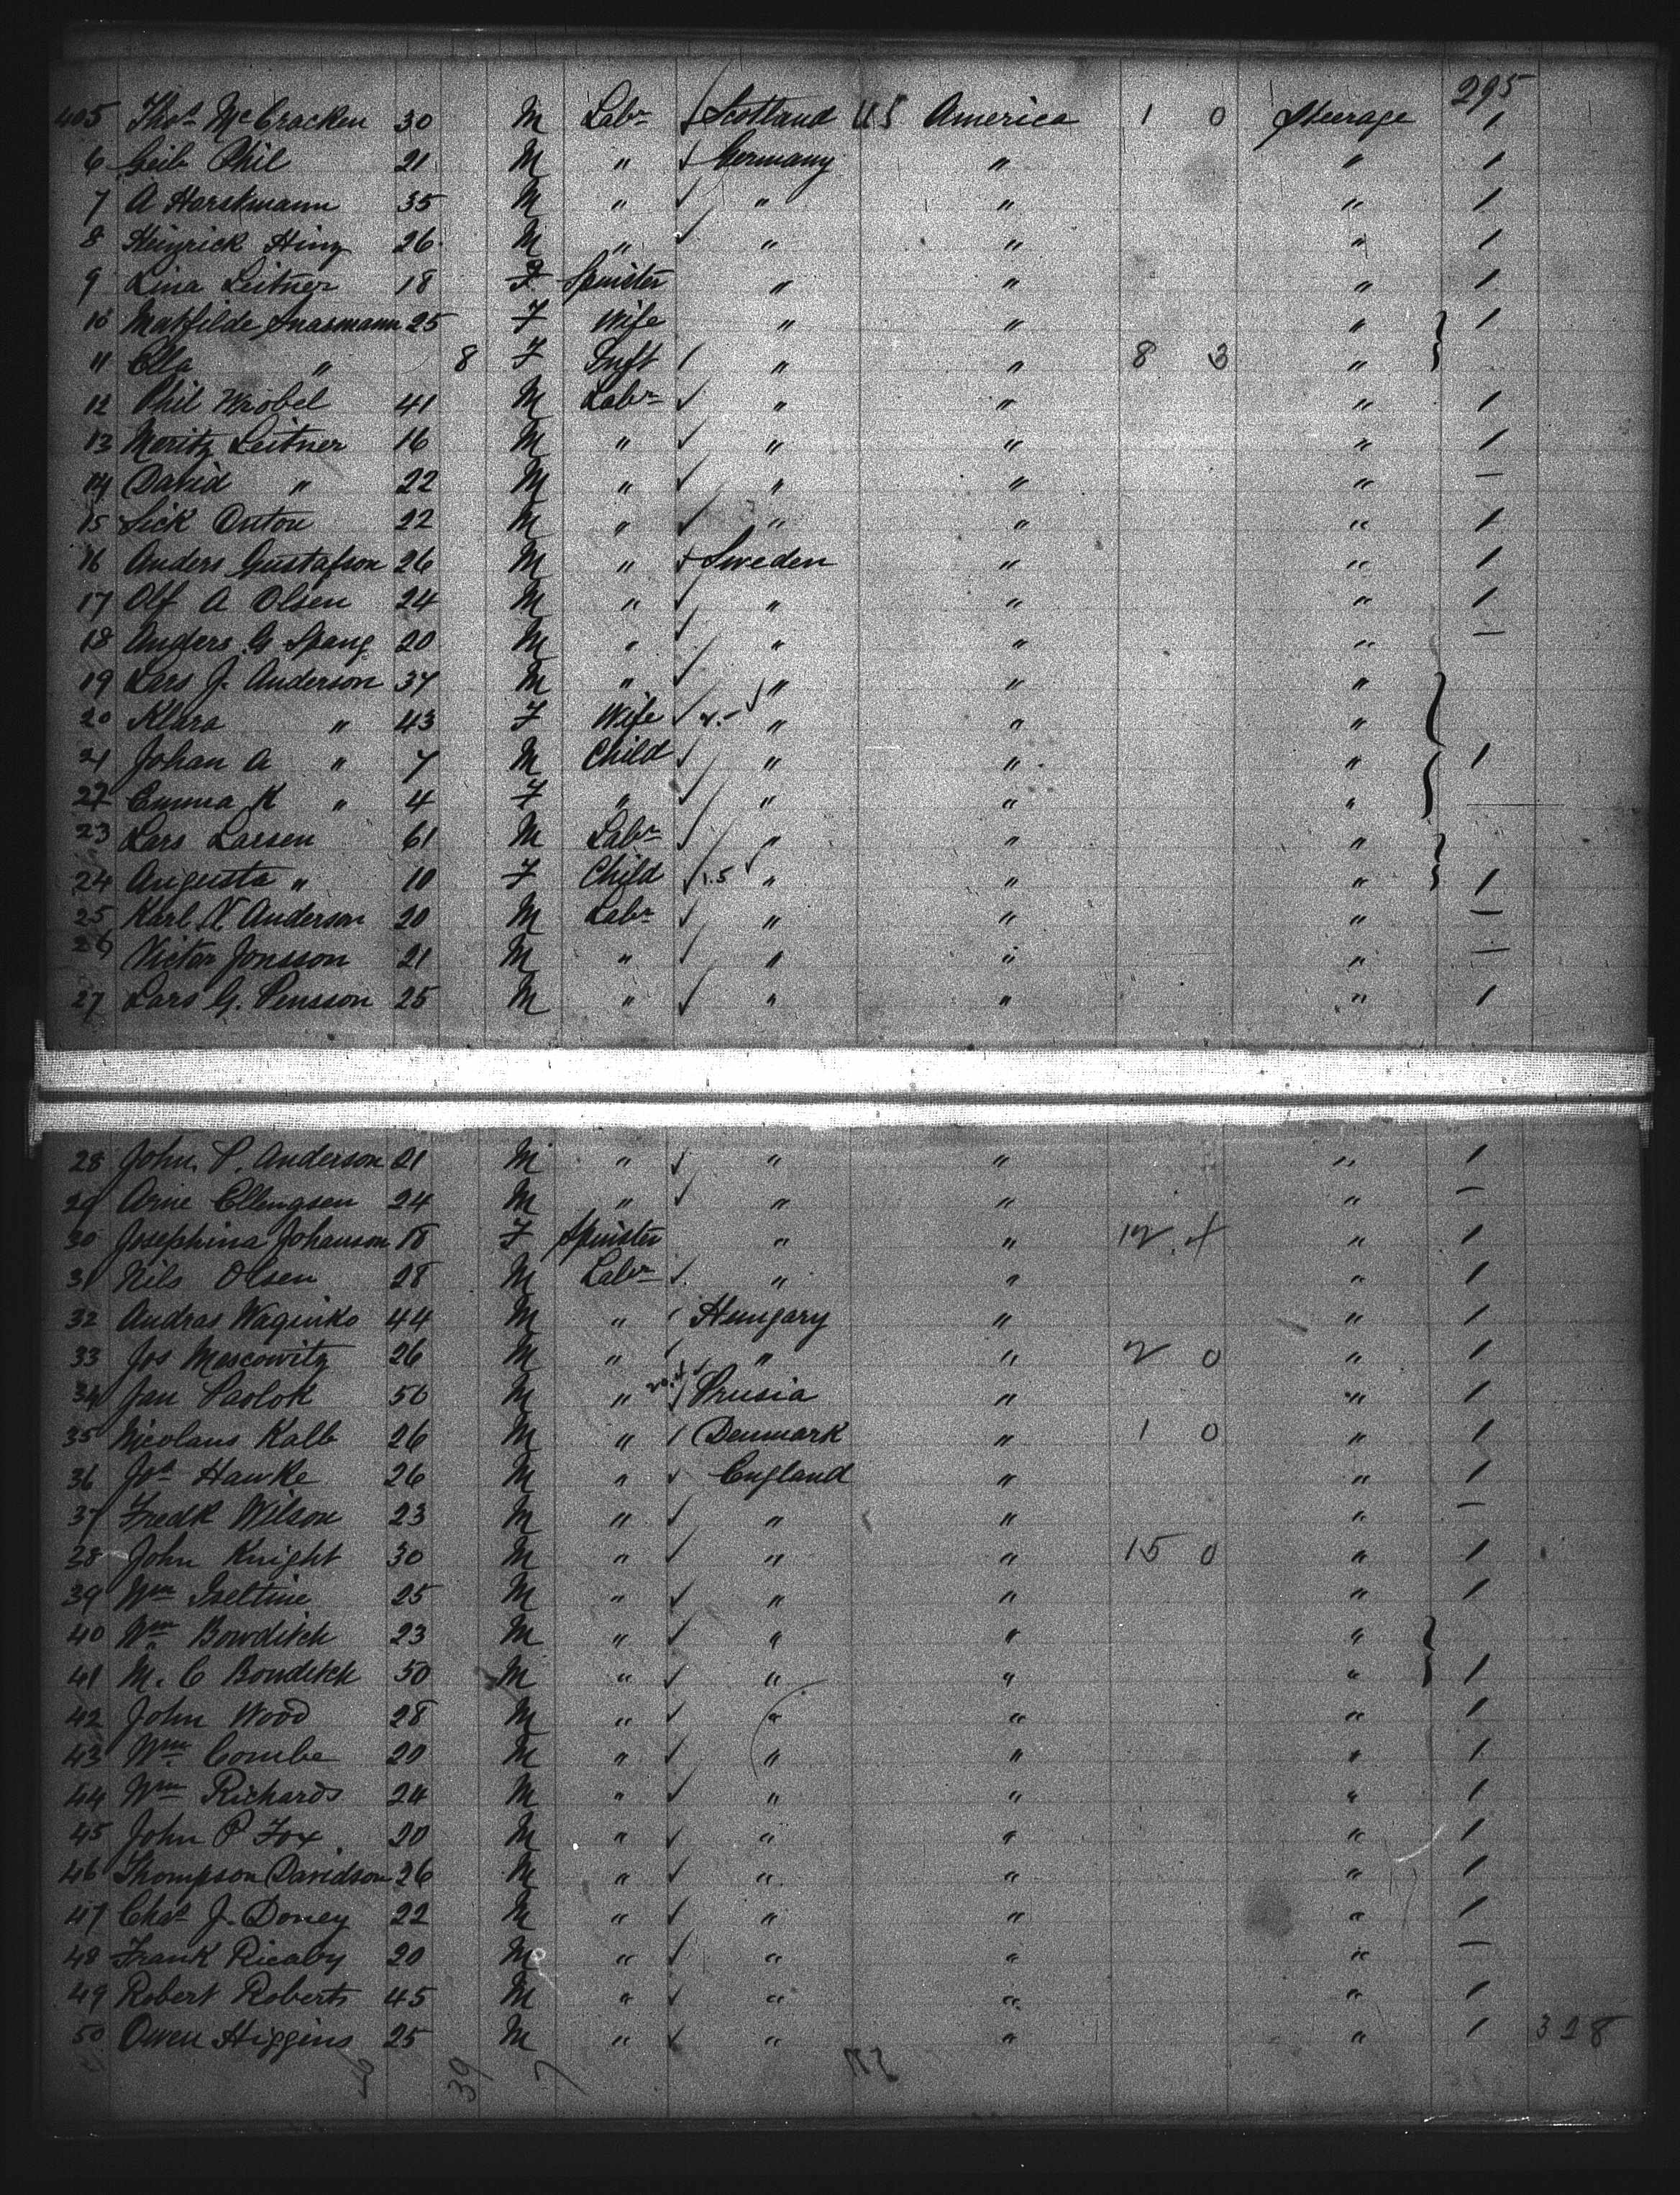 295
405 Thos McCracken 30 M Labr Scotland US America 1 0 Steerage 1
6 Geib Phil 21 M " Germany " " 1
7 A Horstmann 35 M " " " " 1
8 Heinrick Hinz 26 M " " " " 1
9 Lina Leitner 18 F Spinster " " " 1
10 Matfilde 25 F Wife " " " 1
11 Ella " 8 F Inft " " 8 3 "
12 Phil Wrobel 41 M Labr " " " 1
13 Moritz Leitner 16 M " " " " 1
14 David " 22 M " " " " —
15 Sick Anton 22 M " " " " 1
16 Anders Gustafson 26 M " Sweden " " 1
17 Olf A Olsen 24 M " " " " 1
18 Anders G Spang 20 M " " " " —
19 Lars J. Anderson 37 M " " " "
20 Klara " 43 F Wife " " "
21 Johan A " 7 M Child " " " 1
22 Emma K " 4 F " " " "
23 Lars Larsen 61 M Labr " " "
24 Augusta " 10 F Child " " " 1
25 Karl N Anderson 20 M Labr " " " —
26 Victor Jonsson 21 M " " " " —
27 Lars G. Pensson 25 M " " " " 1
28 John P. Anderson 21 M " " " " 1
29 Arne Ellengsen 24 M " " " " —
30 Josephina Johanson 18 F Spinster " " 12 " 1
31 Nils Olsen 28 M Labr " " " 1
32 Andras Waginko 44 M " Hungary " " 1
33 Jos Moscowitz 26 M " " " 2 0 " 1
34 Jan Pavlok 50 M " Prusia " " 1
35 Nicolaus Kalb 26 M " Denmark " 1 0 " 1
36 Jos Hawke 26 M " England " " 1
37 Fredk Wilson 23 M " " " " —
38 John Knight 30 M " " " 15 0 " 1
39 Wm Iseltine 25 M " " " " 1
40 Wm Bowditch 23 M " " " "
41 M. C Bowditch 50 M " " " " 1
42 John Wood 28 M " " " " 1
43 Wm Combe 20 M " " " " 1
44 Wm Richards 24 M " " " " 1
45 John P Fox 20 M " " " " 1
46 Thompson Davidson 26 M " " " " 1
47 Chas J. Doney 22 M " " " " 1
48 Frank Ricaby 20 M " " " " —
49 Robert Roberts 45 M " " " " 1
50 Owen Higgins 25 M " " " " 1 328
39 7